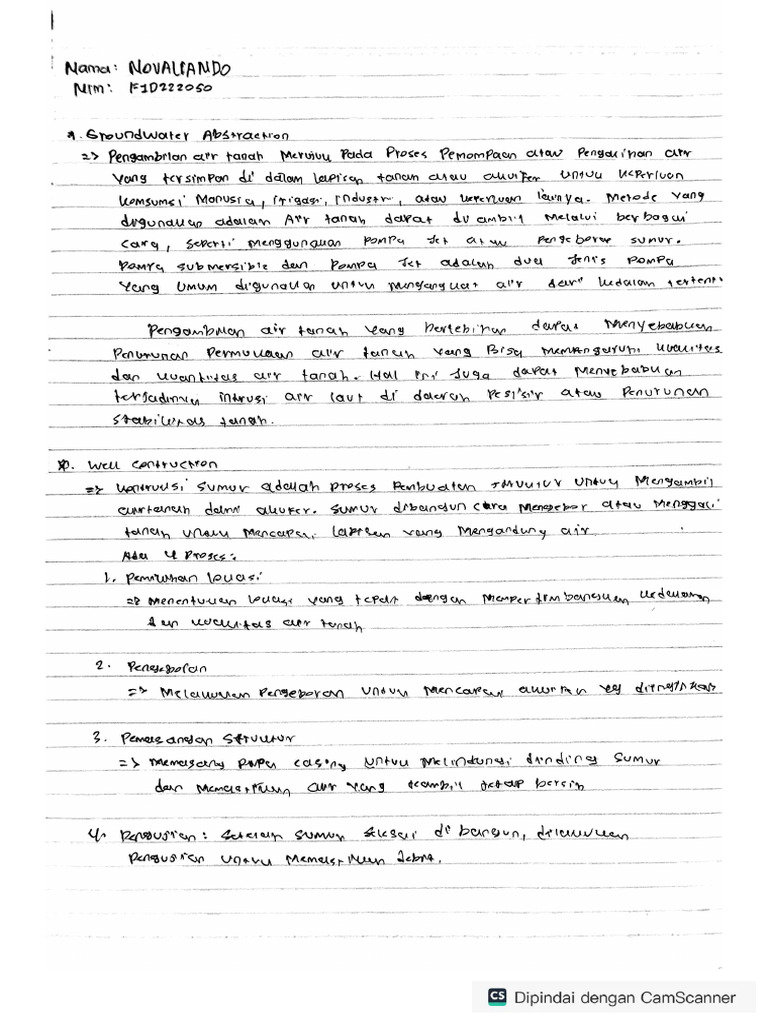 Nama: NOVALIANDO
NIM: F1D222050
1. Groundwater Abstraction
=> Pengambilan air tanah Merujuk Pada Proses Pemompaan atau Pengalihan air
yang tersimpan di dalam lapisan tanah atau akuifer untuk keperluan
konsumsi Manusia, irigasi, industri, atau keperluan lainya. Metode yang
digunakan adalah Air tanah dapat di ambil Melalui berbagai
cara, seperti menggunakan pompa Jet atau pengeboran sumur.
pompa submersible dan pompa Jet adalah dua Jenis pompa
yang umum digunakan untuk mengangkat air dari kedalam tertent
Pengambilan air tanah yang berlebihan dapat Menyebabkan
Penurunan Permukaan air tanah yang Bisa Memengaruhi kualitas
dan kuantitas air tanah. Hal ini Juga dapat Menyebabkan
terjadinya intrusi air laut di daerah pesisir atau Penurunan
stabilitas tanah.
2. Well Contruction
=> kontruksi sumur adalah proses Pembuatan struktur untuk Mengambil
airtanah dari akuifer. sumur dibangun cara Mengebor atau Menggali
tanah untuk Mencapai lapisan yang Mengandung air
Ada 4 Proses:
1. Pemilihan lokasi
=> Menentukan lokasi yang tepat dengan Mempertimbangkan kedalaman
dan kualitas air tanah
2. Pengeboran
=> Melakukan Pengeboran untuk Mencapai akuifer yg
3. Pemasangan Struktur
=> memasang pipa casing untuk Melindungi dinding sumur
dan Memastikan air yang diambil tetap bersih
4. Pengujian: Setelah sumur selesai di bangun, dilakukan
Pengujian untuk Memastikan debit.
CS Dipindai dengan CamScanner